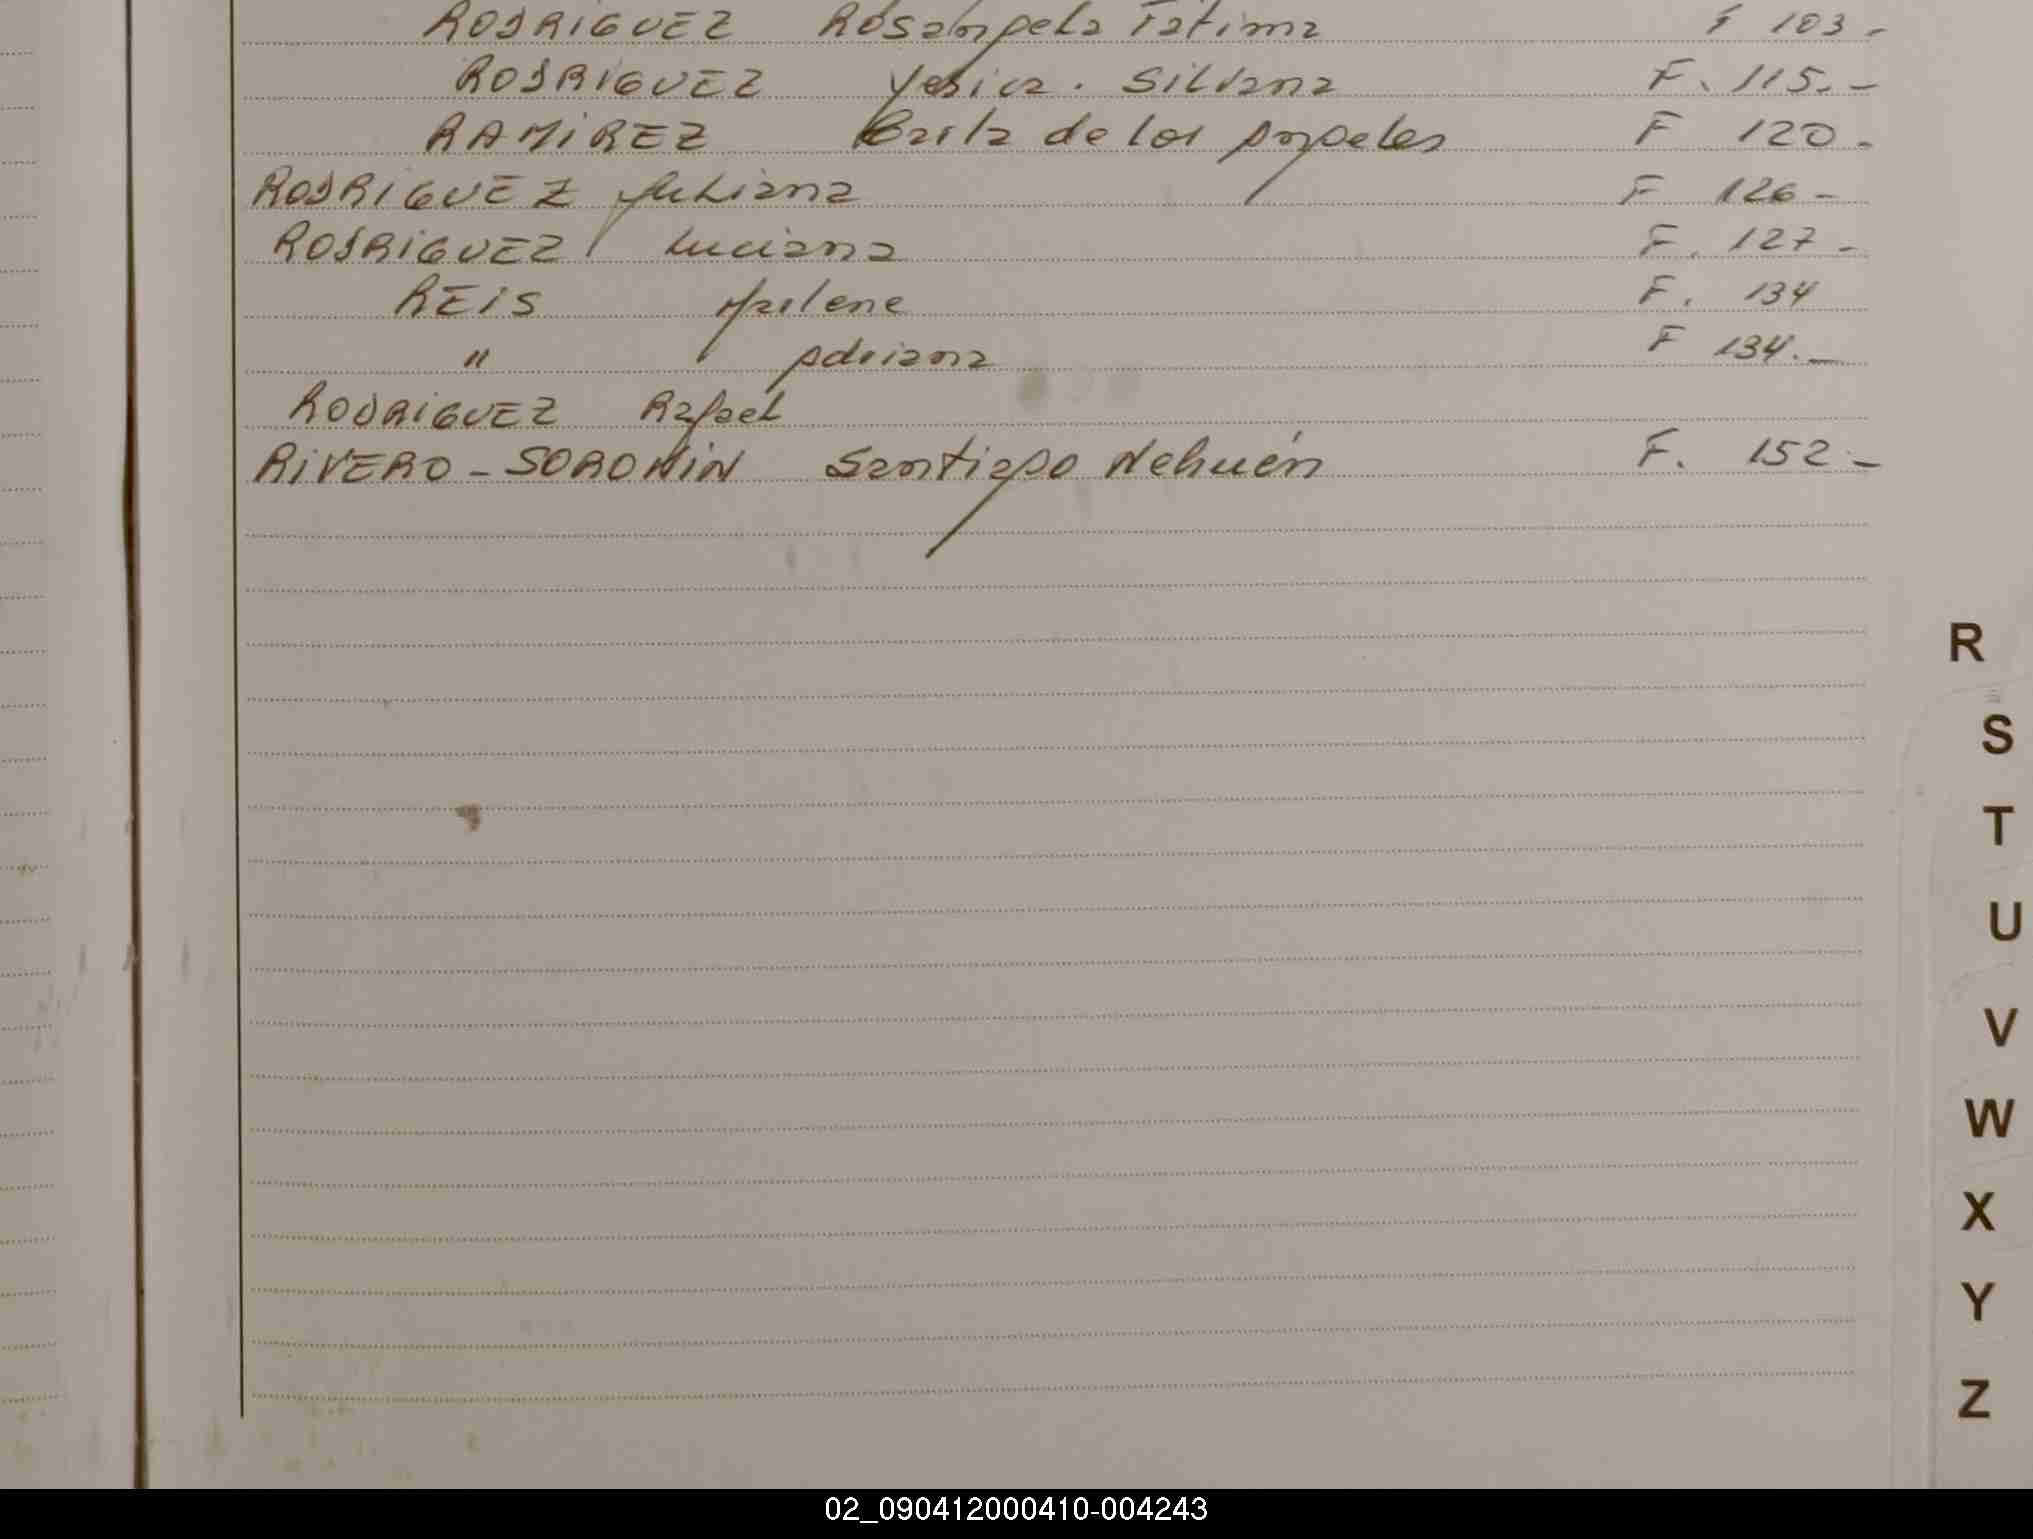 RODRIGUEZ Rosangela Fatima F 103.-
RODRIGUEZ Yesica. Silvana F. 115.-
RAMIREZ Carla de los Angeles F 120.-
RODRIGUEZ Juliana F 126-
RODRIGUEZ Luciana F. 127-
REIS Marlene F. 134
" Adriana F 134.-
RODRIGUEZ Rafael
RIVERO-SORONIN Santiago Nehuén F. 152-
R
S
T
U
V
W
X
Y
Z
02_090412000410-004243